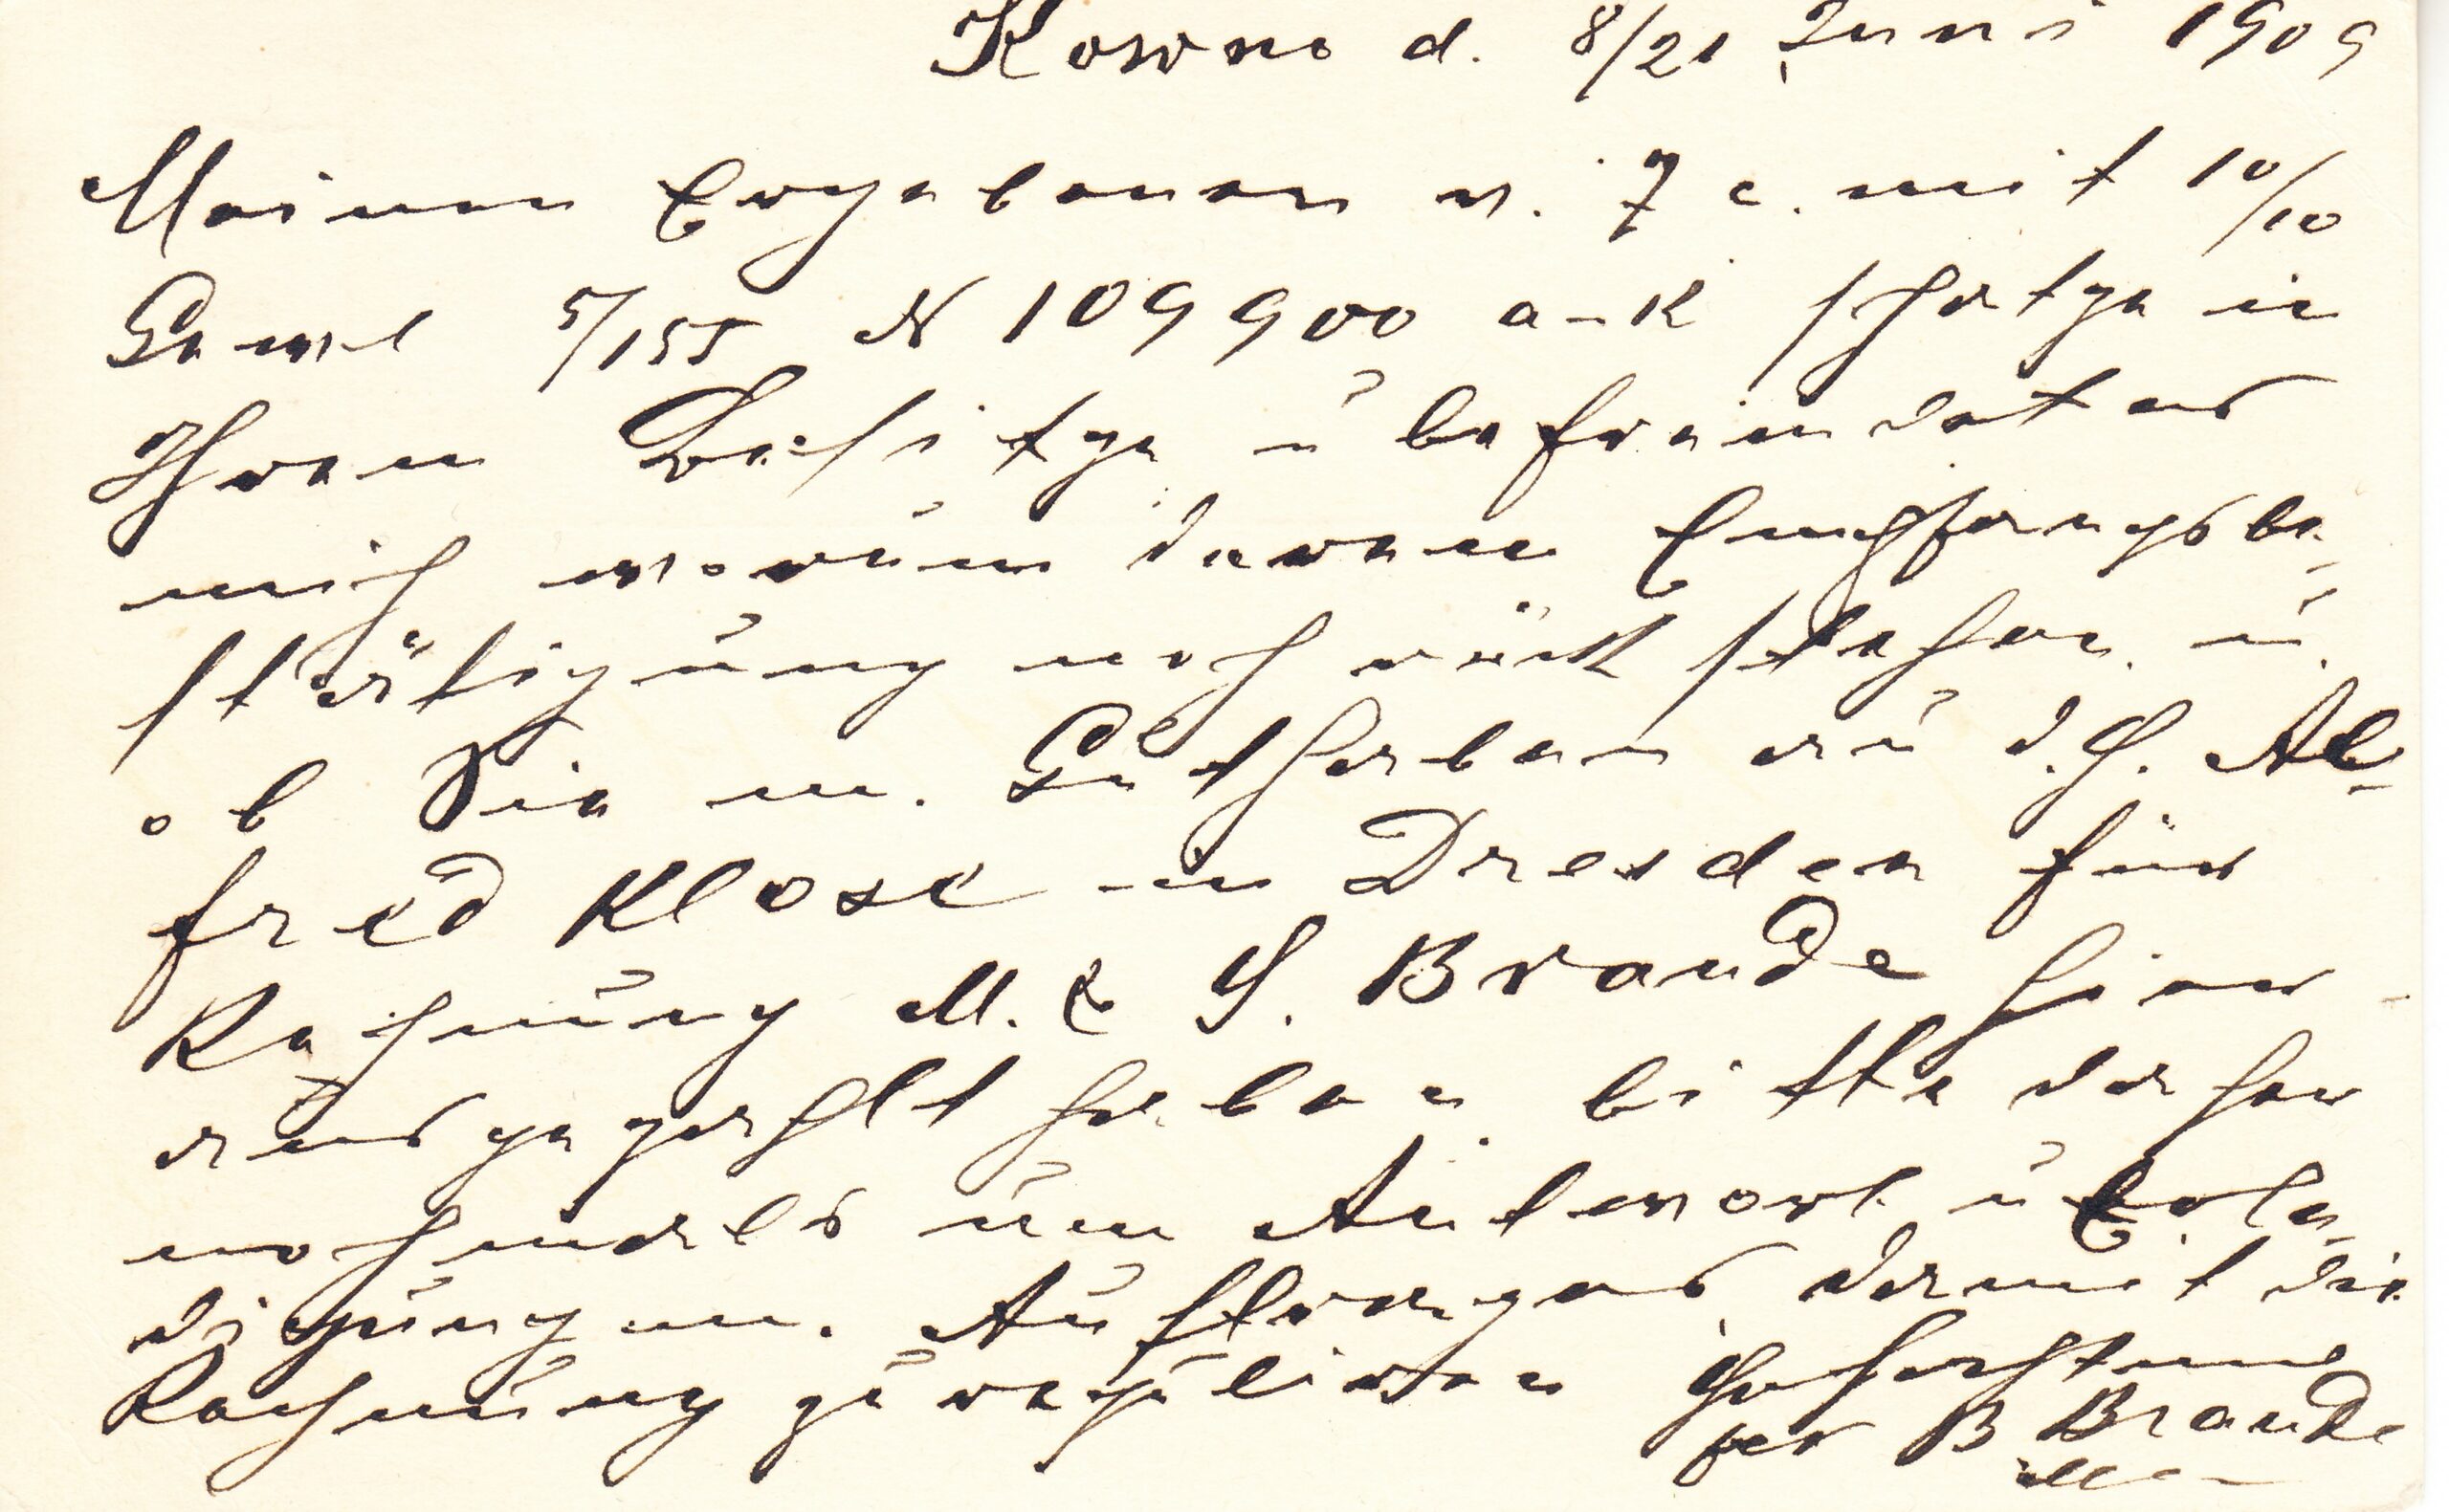 Kowno d. 8/21 Juni 1909
Meinen Ergebenen v. 7 c. mit 10/10
Gewl 5/155 N 109900 a-k schätze in
Ihren Besitze u befremdet es
mich warum deren Empfangsbe-
stätigung noch rückstehen. u.
ob Sie m. Guthaben au d. H. Al-
fred Klose in Dresden für
Rechnung M. & H. Braude hier-
ausgezahlt haben. bitte daher
nochmals um Antwort u Erle-
digung m. Auftrages damit die
Rechnung zu regulieren Hochachtend
per B Braude